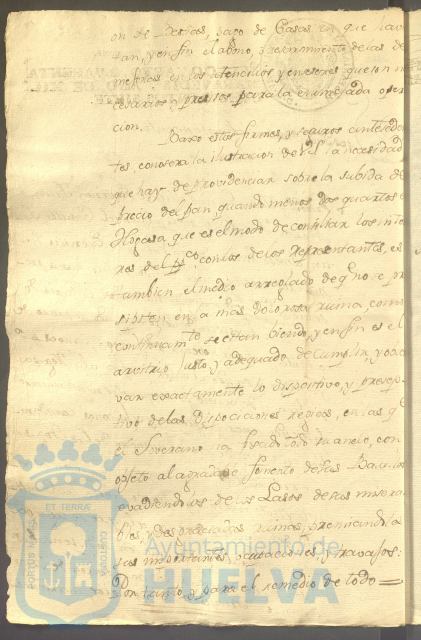 on de Bestias, pago de Casas en que havi
tan, y en fin el abono, y detrimento de las de
mestras en los utencilios y enseres que son ne
cesarios y precisos para la enunciada oper
cion.
Baxo estos firmes, y seguros anteceden
tes, conosera la ilustracion de V.S. la necesidad
que hay de providenciar sobre la subida de
precio del pan quando menos dos quartos e
Hogasa que es el modo de conciliar los inte
res del con los de los Representantes, es
tambien el medio arreglado de q.e no se pr
sipiten en a mas dolorosa ruina, como
continuam.te se estan biendo, y en fin es el
arvitrio justo, y adequado de cumplir, y obser
var exactamente lo dispositivo, y precep
tivo de las Disposiciones regias, en las q.e
el Soverano ha fixado todo su anelo, con
objeto al agradable fomento de sus Basallos
evadiendolos de los Lasos de sus misera
bles, y desgraciadas ruinas, premiando
sus importantes, ocupaciones, y travajos:
Por tanto, y para el remedio de todo =
PORTUS MARIS
ET TERRÆ
CUSTODIA
Ayuntamiento de
HUELVA